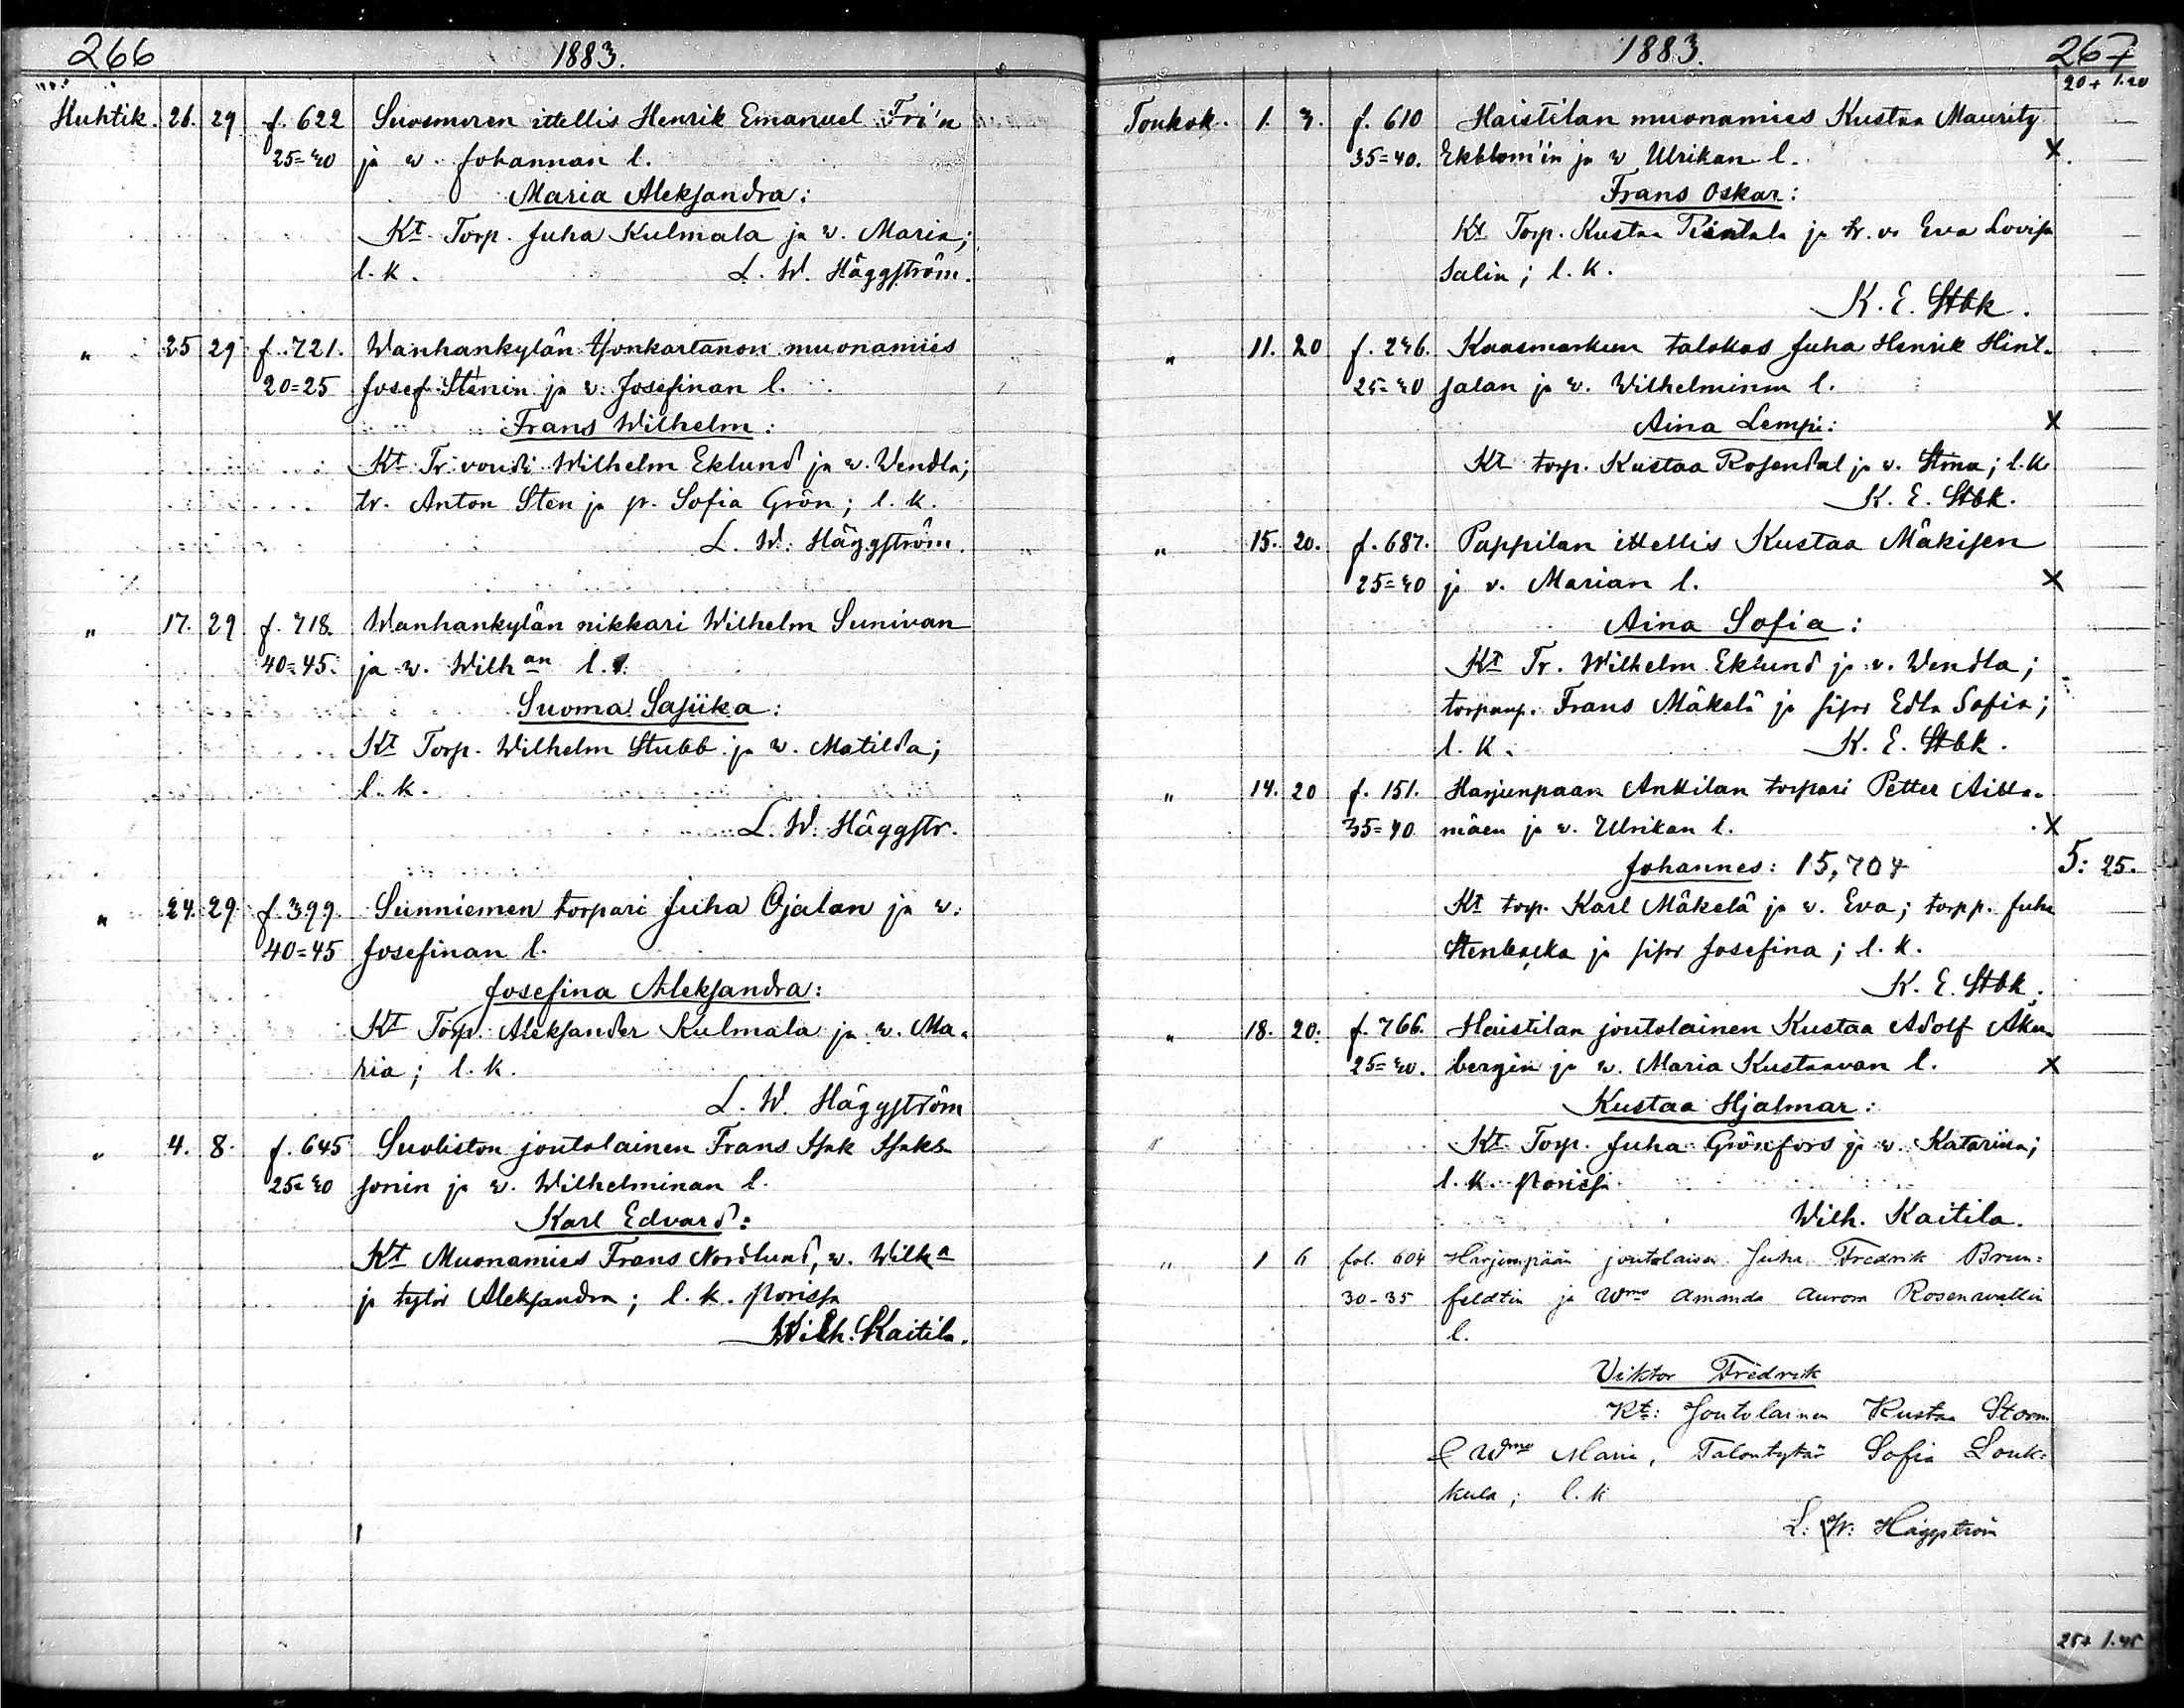 266 1883.
Huhtik. 26. 29 f. 622 Suosmeren ittellis Henrik Emanuel Fri'n
25=30 ja w. Johannan l.
Maria Aleksandra:
Kt Torp. Juha Kulmala ja w. Maria;
l. k. L. W. Häggström.
" 25 29 f. 721. Wanhankylän Honkartanon muonamies
20=25 Josef Stenin ja w. Josefinan l.
Frans Wilhelm:
Kt Tr. voudi Wilhelm Eklund ja w. Wendla;
tr. Anton Sten ja p. Sofia Grön; l. k.
L. W. Häggström.
" 17. 29 f. 718. Wanhankylän nikkari Wilhelm Sunivan
40=45. ja w. Wilhan l.
Suoma Sasiika:
Kt Torp. Wilhelm Stubb ja w. Matilda;
l. k.
L. W. Häggstr.
" 24. 29 f. 399. Sunniemen torpari Juha Ojalan ja w.
40=45 Josefinan l.
Josefina Aleksandra:
Kt Torp. Aleksander Kulmala ja w. Ma-
ria; l. k.
L. W. Häggström
" 4. 8. f. 645 Suoliston joutolainen Frans Isak Isaks-
25=30 sonin ja w. Wilhelminan l.
Karl Edvard:
Kt Muonamies Frans Nordlund, w. Wilha
ja tytör Aleksandra; l. k. Porissa
Wilh. Kaitila.
1883. 267
20+ 1.20
Toukok. 1. 3. f. 610 Haistilan muonamies Kustaa Mauritz
35=40. Ekblom'in ja w Ulrikan l. X.
Frans Oskar:
Kt Torp. Kustaa Rintala ja tr. v. Eva Lovisa
Salin; l. k.
K. E. Stbk.
" 11. 20 f. 246. Kaasmarkun talokas Juha Henrik Hint-
25=30 salan ja w. Wilhelminan l.
Aina Lempi: X
Kt torp. Kustaa Rosendal ja v. Stina; l. k.
K. E. Stbk.
" 15. 20. f. 687. Pappilan ittellis Kustaa Mäkisen
25=30 ja v. Marian l. X
Aina Sofia:
Kt Tr. Wilhelm Eklund ja v. Wendla;
torpanp. Frans Mäkelä ja sisar Edla Sofia;
l. k. K. E. Stbk.
" 14. 20 f. 151. Harjunpään Anttilan torpari Petter Aitta-
35=40 mäen ja w. Ulrikan l. X
Johannes: 15,704 5: 25.
Kt torp. Karl Mäkelä ja w. Eva; torpp. Juha
Stenbacka ja sisar Josefina; l. k.
K. E. Stbk.
" 18. 20. f. 766. Haistilan joutolainen Kustaa Adolf Åker-
25=30. bergin ja w. Maria Kustaavan l. X
Kustaa Hjalmar:
Kt Torp. Juha Grönfors ja w. Katariina;
l. k. Porissa
Wilh. Kaitila.
" 1 6 fol. 604 Harjunpään joutolaisen Juha Fredrik Brun=
30-35 feldtin ja Wmo Amanda Aurora Rosenwallin
l.
Viktor Fredrik
Kt: Joutolainen Kustaa Storm
& Wmo Maria, Talontytär Sofia Louk=
kula; l. k
L: W: Häggström
25+ 1.45